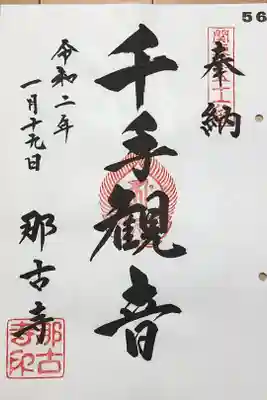 56
奉納
千手観音
令和二年
一月十九日
那古寺
那古
寺印